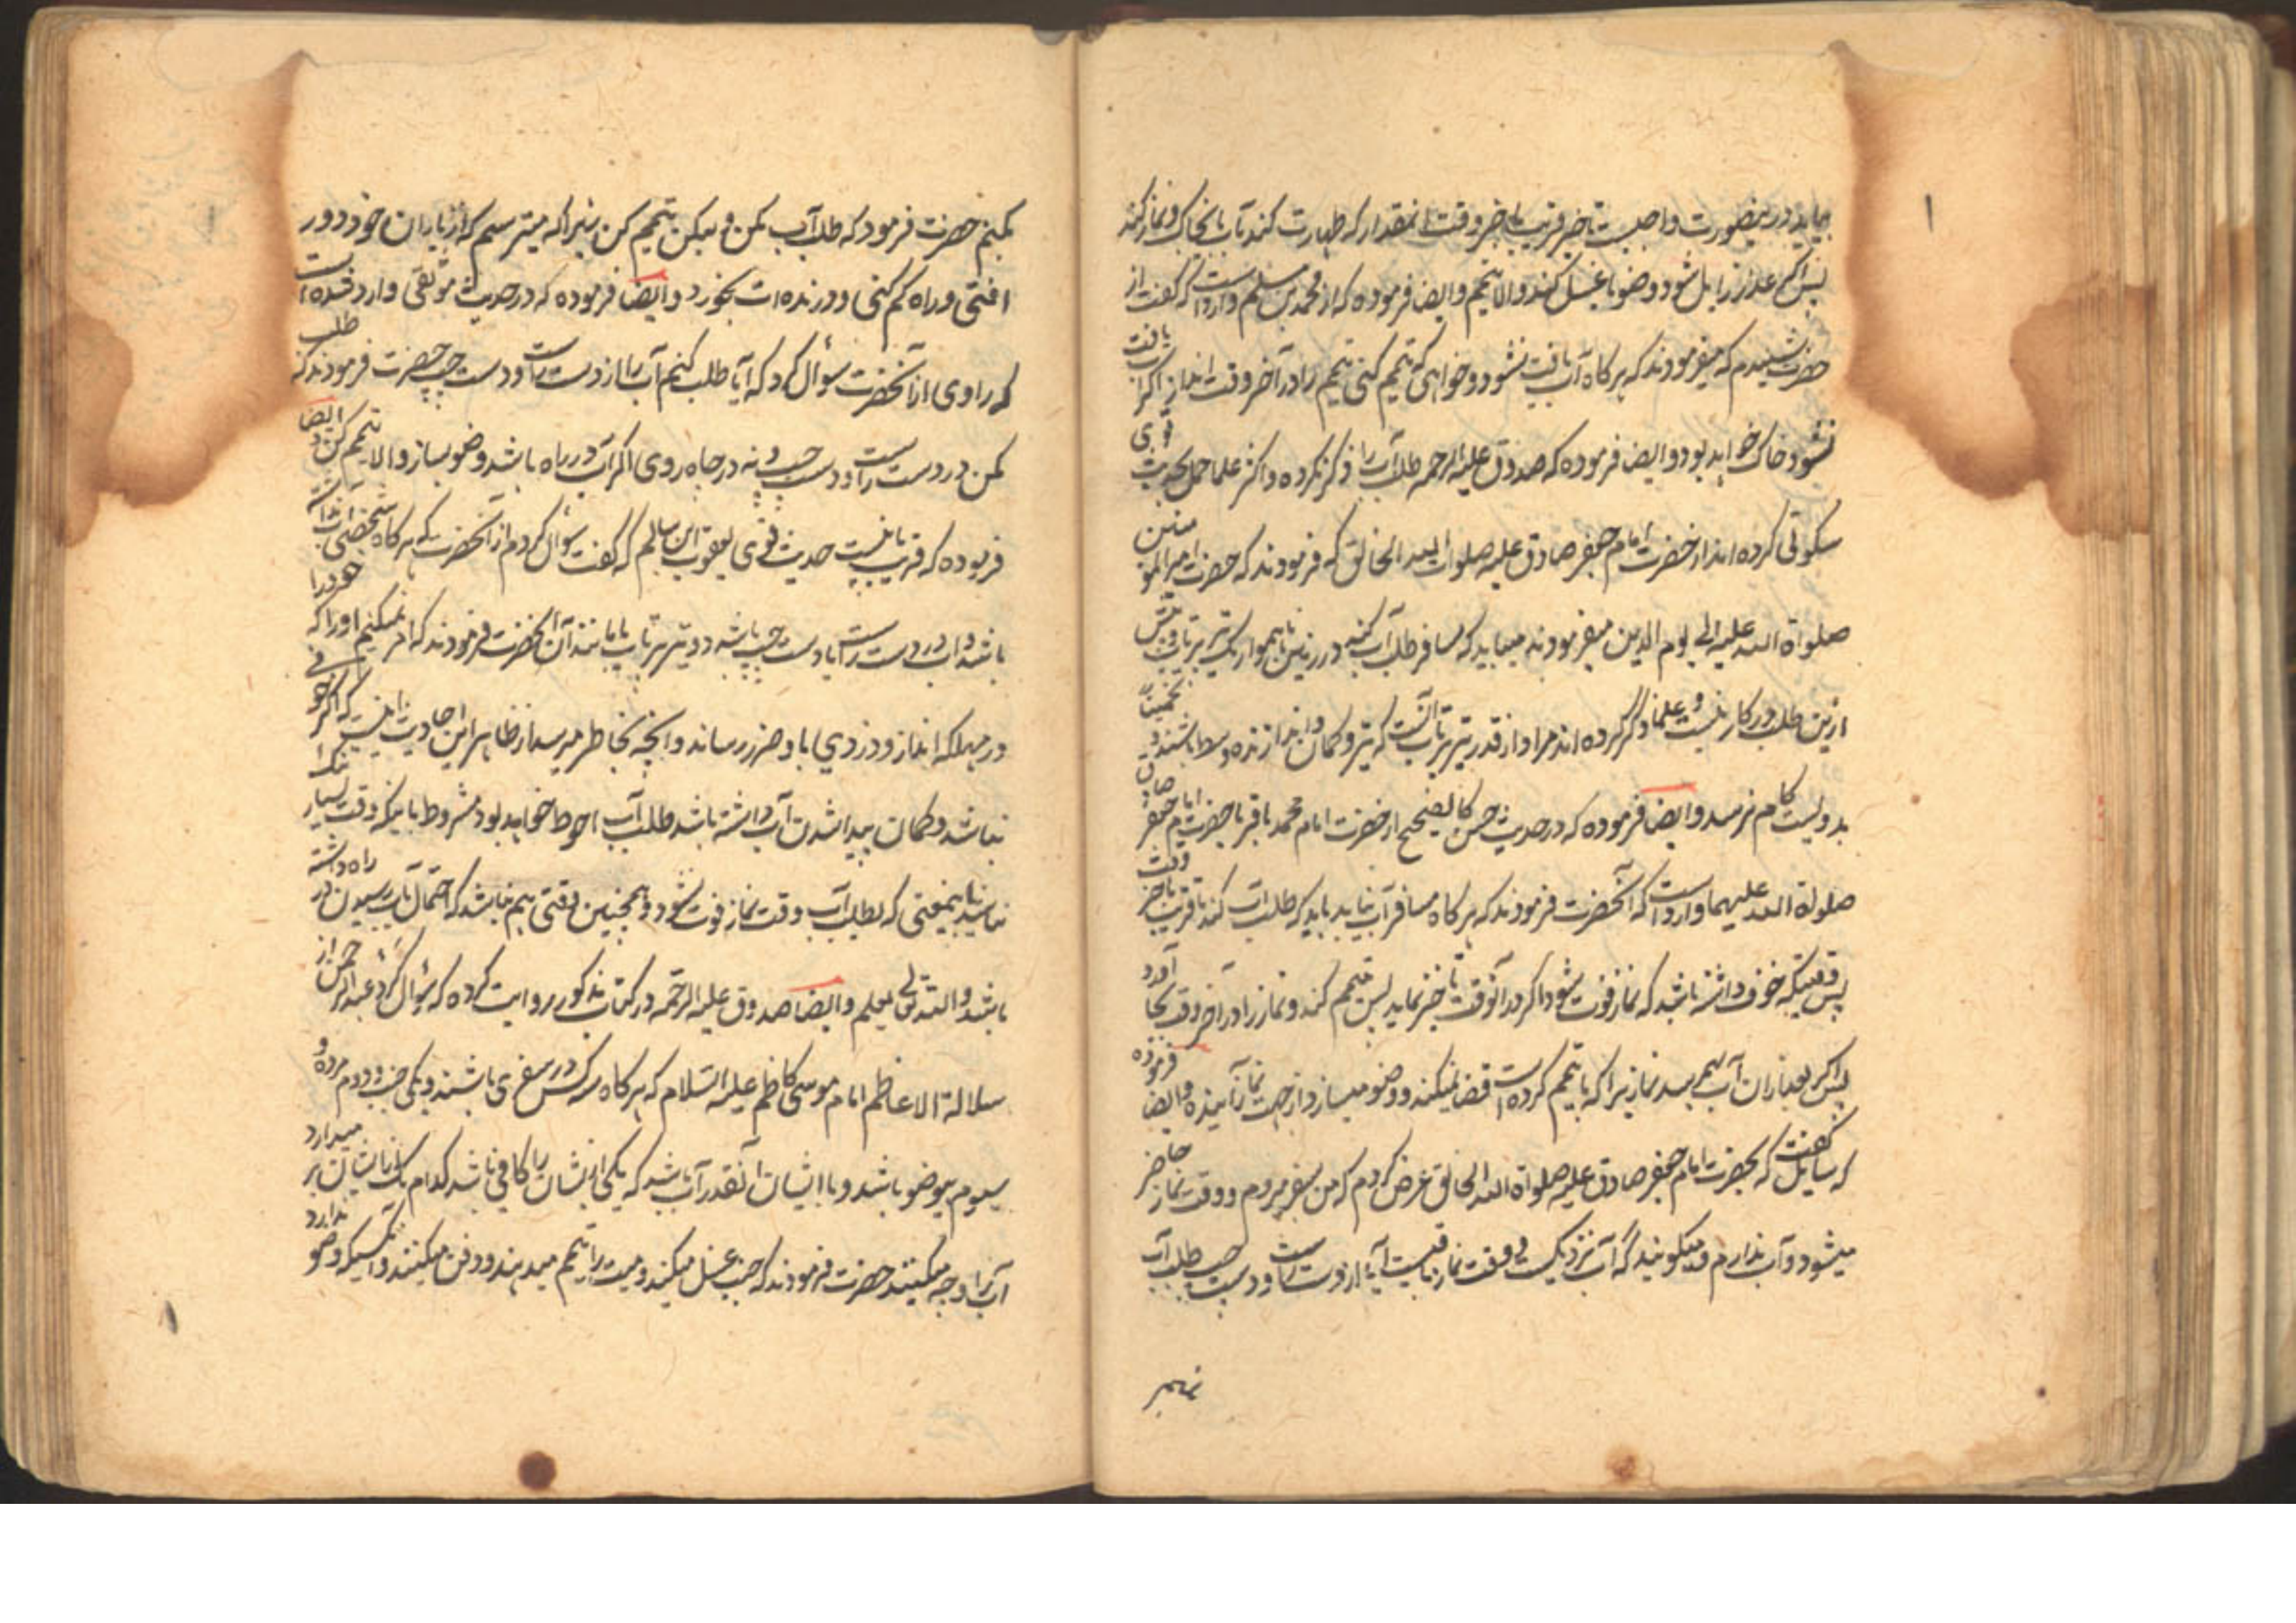 بیاید درینصورت واجبست تاخیر قریب باخر وقت انمقدار که طهارت کند بآب یا بخاک و نماز کند
پس اگر عذر زایل شود وضو یا غسل کند والا تیمم وایضا فرموده که از محمد بن مسلم وارد است که گفت از
حضرت شنیدم که میفرمودند که هرکاه آب یافت نشود و خواهی که تیمم کنی تیمم را در آخر وقت انداز اگر آب یافت
نشود خاک خواهد بود وایضا فرموده که صدوق علیه الرحمه طلب آب را ذکر نکرده و اکثر علما عمل بحدیث
سکونی کرده اند از حضرت امام جعفر صادق علیه صلوات الله الخالق که فرمودند که حضرت امیر المومنین
صلواة الله علیه الی یوم الدین میفرمودند میباید که مسافر طلب آب کند در زمین ناهموار یک تیر پرتاب و بیش
ازین طلب در کار نیست و علما ذکر کرده اند مراد از قدر تیر پرتاب آنست که تیر و کمان و اندازنده وسط باشند تخمینا
بدویست کام نرسد وایضا فرموده که در حدیث حسن کالصحیح از حضرت امام محمد باقر یا حضرت امام جعفر صادق
صلوة الله علیهما وارد است که آنحضرت فرمودند که هرکاه مسافر آب نیابد باید که طلب آب کند تا قریب باخر وقت
پس وقتیکه خوف داشته باشد که نماز فوت شود اگر در آنوقت تاخیر نماید پس تیمم کند و نماز را در آخر وقت بجا آورد
پس اگر بعد از ان آب بهم رسد نمازیرا که با تیمم کرده است قضا نمیکند و وضو میسازد از جهت نماز آینده وایضا فرموده
که سایل گفت که بحضرت امام جعفر صادق علیه صلواة الله الخالق عرض کردم که من بسفر میروم و وقت نماز حاضر
میشود و آب ندارم و میگویند که آب نزدیک است و وقت نماز باقیست آیا از دست راست و دست چپ طلب آب
بکنم حضرت فرمود که طلب آب مکن ولیکن تیمم کن زیرا که میترسم که از یاران خود دور
افتی و راه کم کنی و درنده ات بخورد وایضا فرموده که در حدیث موثقی وارد شده است
که راوی از آنحضرت سؤال کرد که آیا طلب کنم آب را از دست راست و دست چپ حضرت فرمودند که طلب
مکن در دست راست و دست چپ و نه در چاه روی اگر آب در راه باشد وضو بساز والا تیمم کن و ایضا
فرموده که قریب باینست حدیث قوی یعقوب ابن سالم که گفت سؤال کردم از آنحضرت که هرکاه شخصی آب نداشته
باشد و آب در دست راست یا دست چپ باشد دو تیر پرتاب یا مانند آن آنحضرت فرمودند که امر نمیکنم او را که خود را
در مهلکه اندازد و دزدی یا او ضرر رساند و آنچه بخاطر میرسد از ظاهر این احادیث اینست که اگر خوفی
نباشد و کمان پیدا شدن آب داشته باشد طلب آب احوط خواهد بود مشروط باینکه وقت بسیار تنک
نباشد باینمعنی که بطلب آب وقت نماز فوت شود و همچنین وقتی هم نباشد که احتمال بآب رسیدن در راه داشته
باشد والله تعالی یعلم وایضا صدوق علیه الرحمه در کتاب مذکور روایت کرده که سؤال کرد عبد الرحمن از
سلالة الاعاظم امام موسی کاظم علیه السلام که هرکاه سه کس در سفری باشند و یکی جنب و دوم مرده و
سیوم بیوضو باشد و با ایشان آنقدر آب باشد که یکی از ایشان را کافی باشد کدام یک از ایشان بر میدارد
آب را و چه میکنند حضرت فرمودند که جنب غسل میکند و میت را تیمم میدهند و دفن میکنند و آنکسیکه وضو ندارد